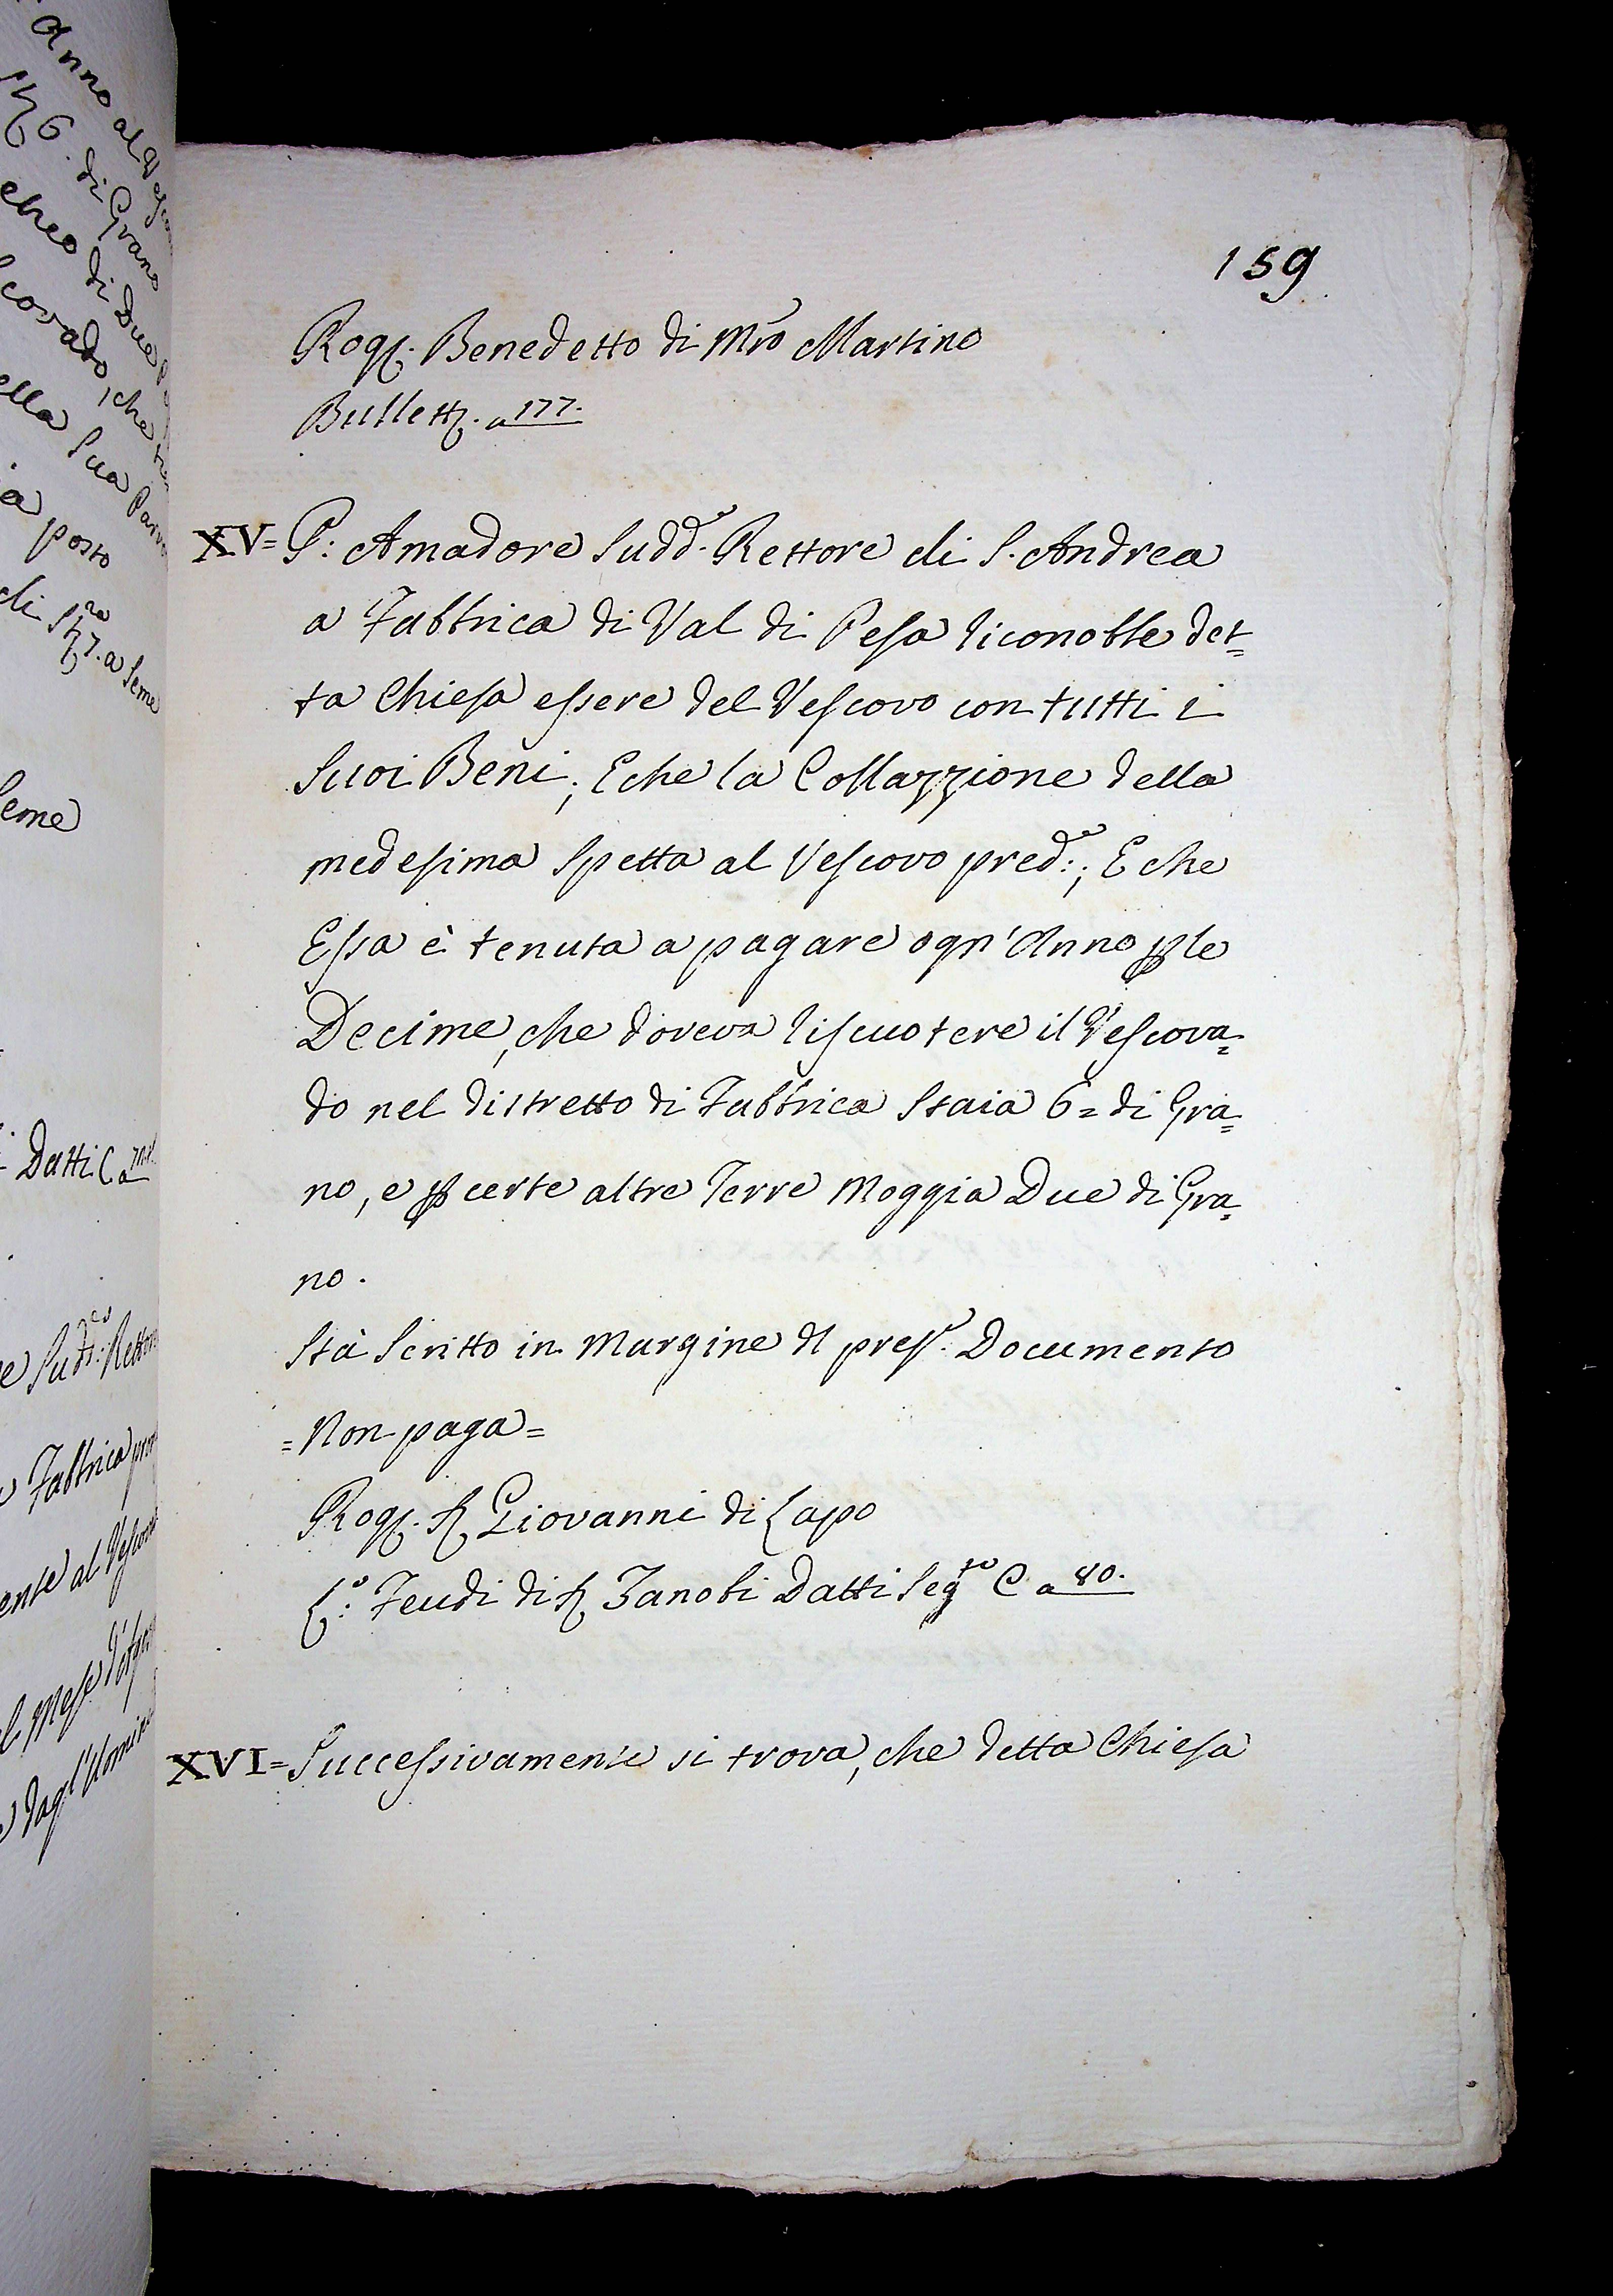 159
Rog. Benedetto di Mro Martino
Bullett. a 177.
XV= P: Amadore Sudd.e Rettore di S. Andrea
a Fabbrica di Val di Pesa riconobbe det=
ta Chiesa essere del Vescovo con tutti i
Suoi Beni; E che la Collazzione della
medesima Spetta al Vescovo pred:e; E che
Essa è tenuta a pagare ogn'Anno p le
Decime, che doveva riscuotere il Vescova=
do nel distretto di Fabbrica Staia 6= di Gra=
no, e p certe altre Terre Moggia Due di Gra=
no.
Stà Scritto in Margine dl pres.e Documento
=Non paga=
Rog. Sr Giovanni di Lapo
L:o Feudi di Sr Zanobi Datti Seg.to C a 80.
XVI= Successivamente si trova, che detta Chiesa
Anno al
di Grano
di Due
covado, che
ella Sua
ia posto
di
a Seme
Seme
Datti C a
Rettore
Fabbrica
ente al
l Mese
dagl'Uomini